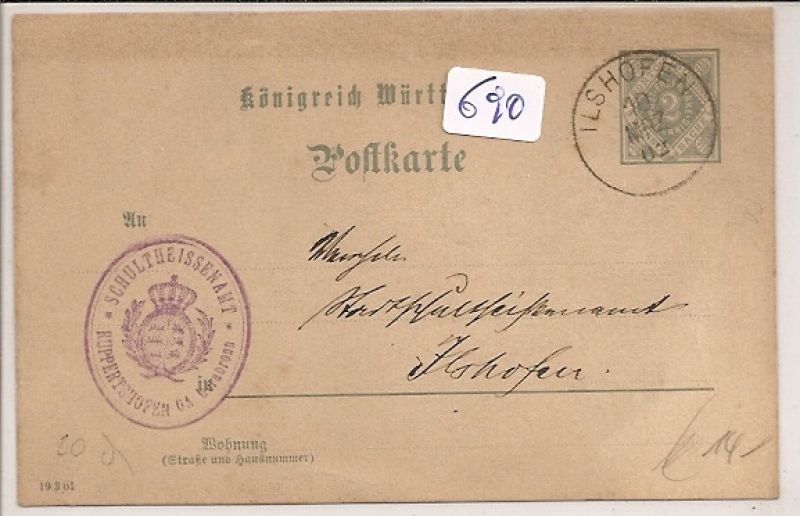 Königreich Württ
690
Postkarte
ILSHOFEN
20
02
2
An
SCHULTHEISSENAMT
RUPPERTSHOFEN OA Gerabronn
Stadtschultheißenamt
in
Ilshofen.
Wohnung
(Straße und Hausnummer)
20
19 3 01